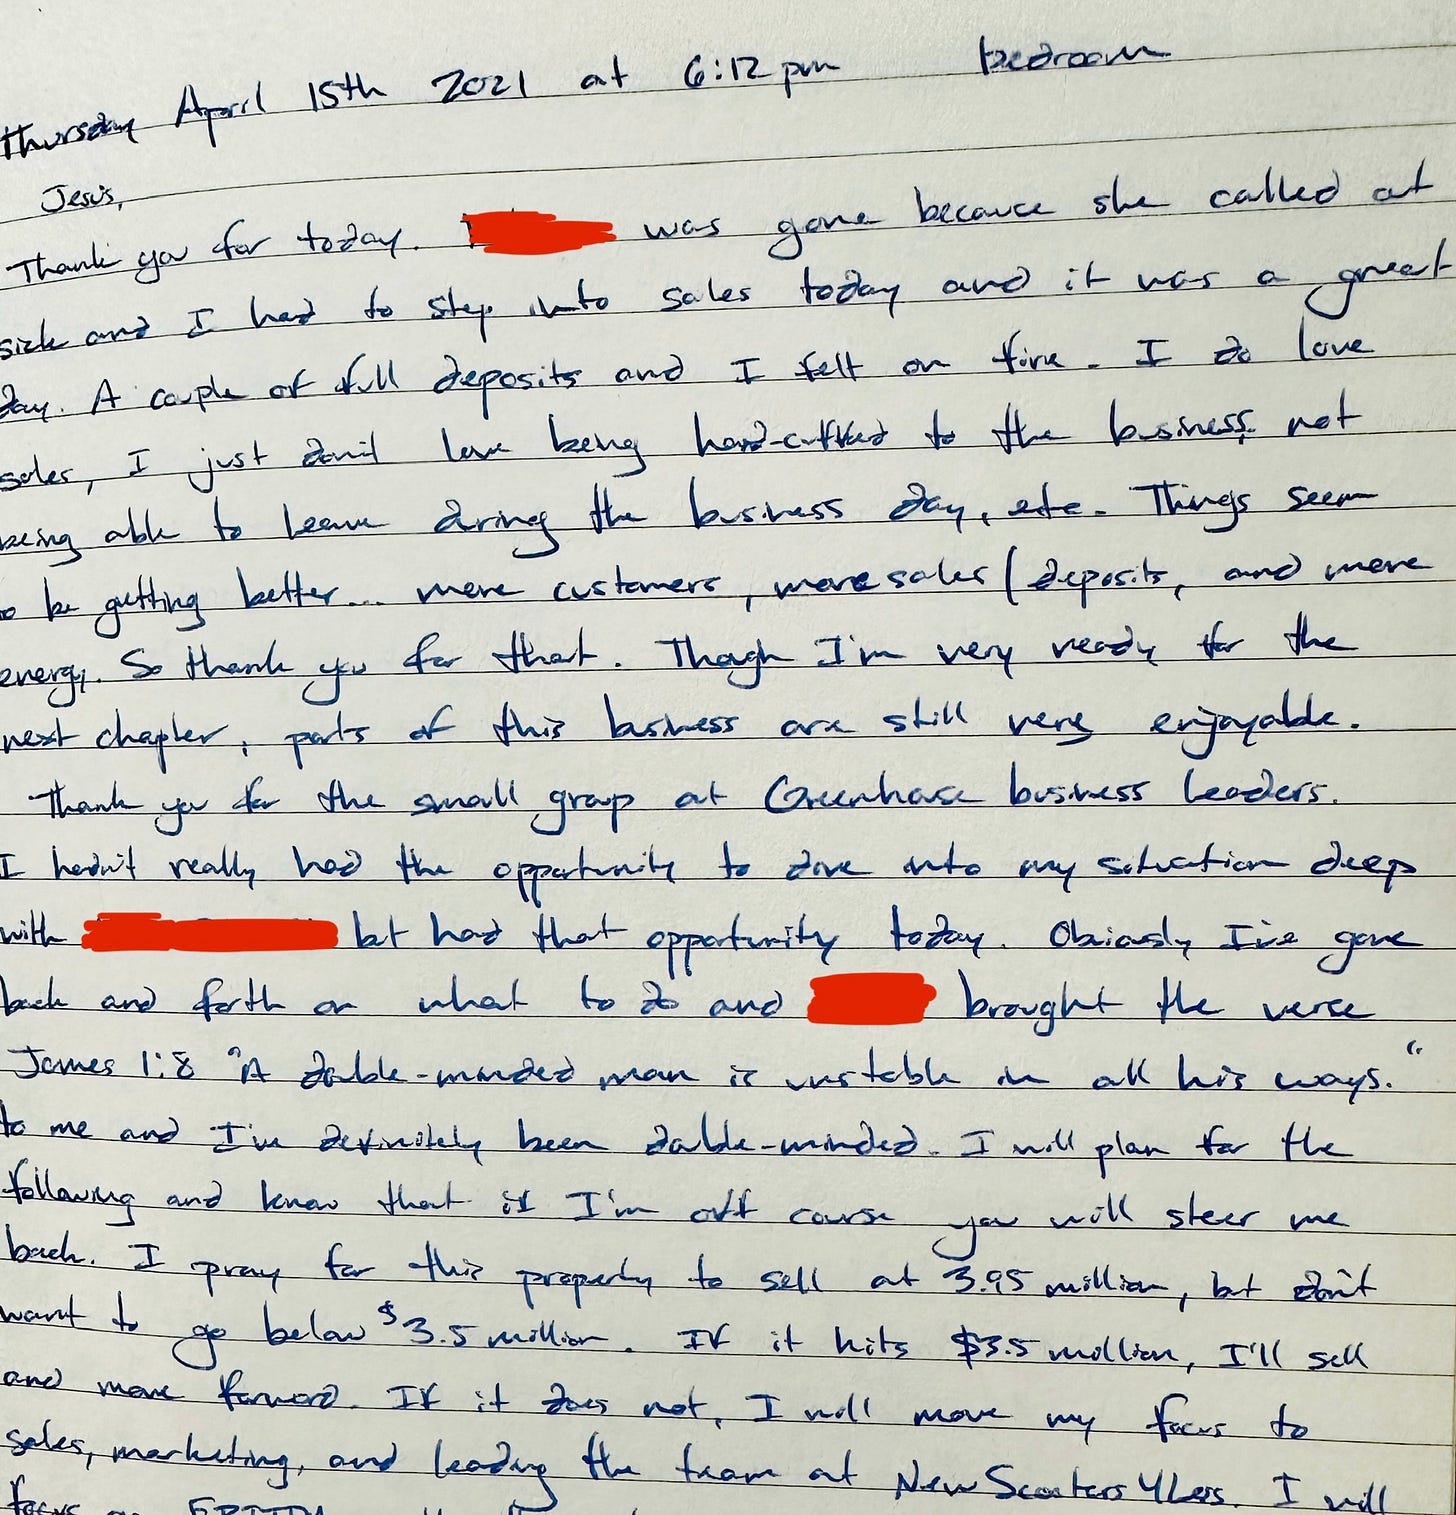 Thursday April 15th 2021 at 6:12 pm bedroom
Jesus,
Thank you for today. was gone because she called at
sick and I had to step into sales today and it was a great
day. A couple of full deposits and I felt on fire. I do love
sales, I just don't love being hand-cuffed to the business, not
being able to leave during the business day, etc. Things seem
to be getting better... more customers, more sales / deposits, and more
energy. So thank you for that. Though I'm very ready for the
next chapter, parts of this business are still very enjoyable.
Thank you for the small group at Greenhouse business leaders.
I hadn't really had the opportunity to dive into my situation deep
with but had that opportunity today. Obviously I've gone
back and forth on what to do and brought the verse
James 1:8 "A double-minded man is unstable in all his ways."
to me and I've definitely been double-minded. I will plan for the
following and know that if I'm off course you will steer me
back. I pray for this property to sell at 3.95 million, but don't
want to go below $3.5 million. If it hits $3.5 million, I'll sell
and move forward. If it does not, I will move my focus to
sales, marketing, and leading the team at New Scooters 4 Less. I will
focus on EBITDA